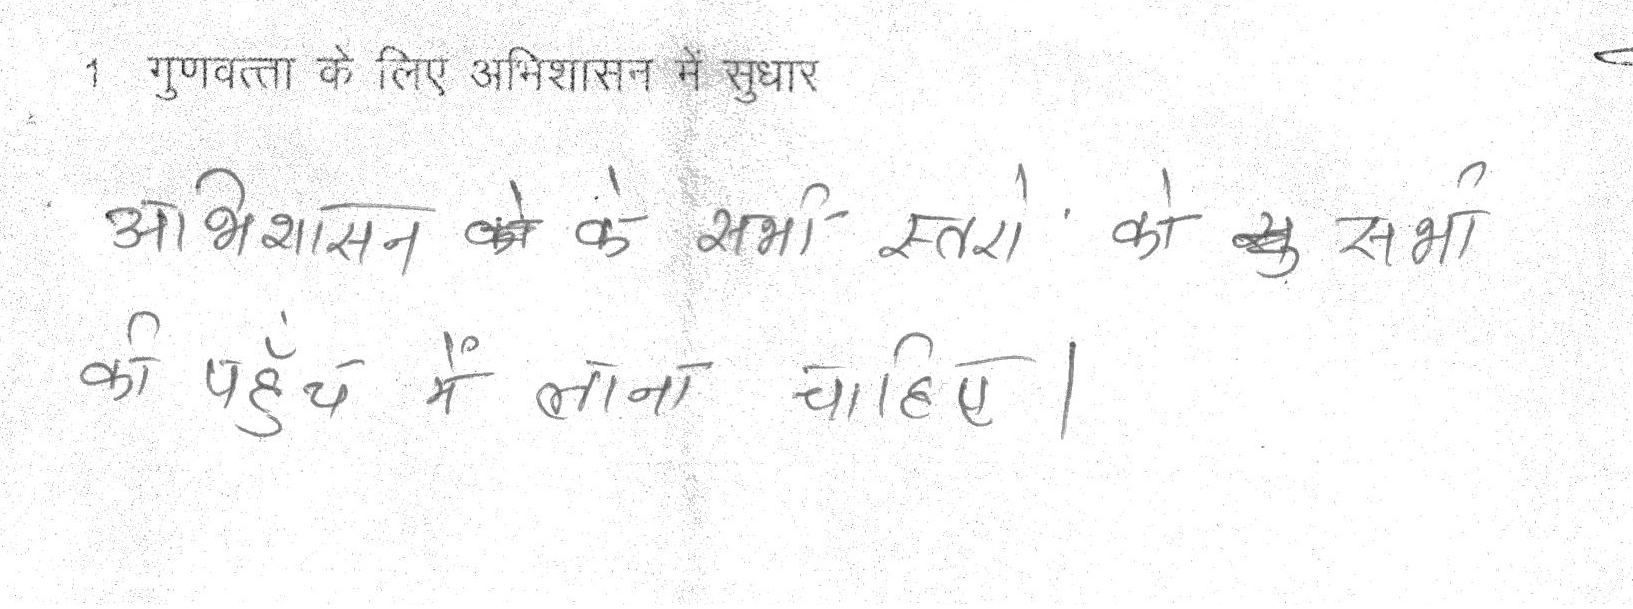 1 गुणवत्ता के लिए अभिशासन में सुधार
अभिशासन के सभी स्तरों को सभी
की पहुँच में लाना चाहिए।